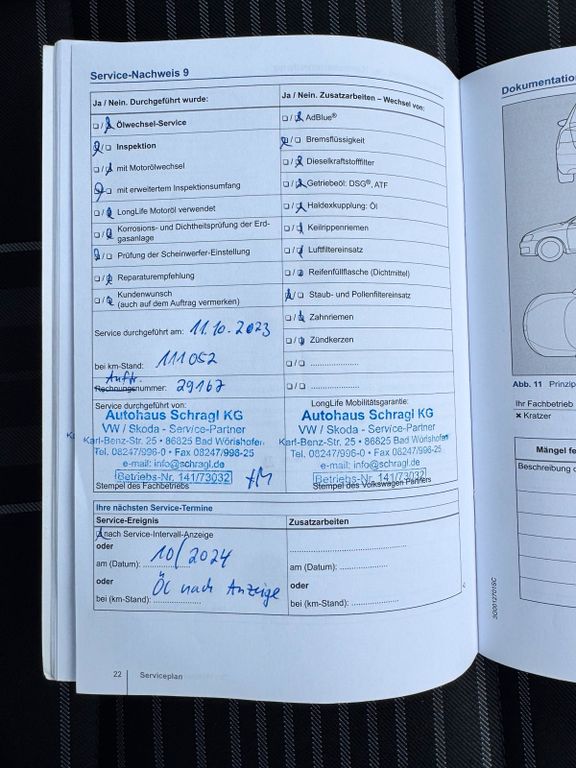 Service-Nachweis 9
Ja / Nein. Durchgeführt wurde:
❑ / ❑ Ölwechsel-Service
❑ / ❑ Inspektion
❑ / ❑ mit Motorölwechsel
❑ / ❑ mit erweitertem Inspektionsumfang
❑ / ❑ LongLife Motoröl verwendet
❑ / ❑ Korrosions- und Dichtheitsprüfung der Erd-
gasanlage
❑ / ❑ Prüfung der Scheinwerfer-Einstellung
❑ / ❑ Reparaturempfehlung
❑ / ❑ Kundenwunsch
(auch auf dem Auftrag vermerken)
Service durchgeführt am: 11.10.2023
bei km-Stand: 111052
Auftr.
Rechnungsnummer: 29167
Service durchgeführt von:
Autohaus Schragl KG
VW / Skoda - Service-Partner
Karl-Benz-Str. 25 • 86825 Bad Wörishofen
Tel. 08247/996-0 • Fax 08247/996-25
e-mail: info@schragl.de
Betriebs-Nr. 141/73032
Stempel des Fachbetriebs
Ja / Nein. Zusatzarbeiten – Wechsel von:
❑ / ❑ AdBlue®
❑ / ❑ Bremsflüssigkeit
❑ / ❑ Dieselkraftstofffilter
❑ / ❑ Getriebeöl: DSG®, ATF
❑ / ❑ Haldexkupplung: Öl
❑ / ❑ Keilrippenriemen
❑ / ❑ Luftfiltereinsatz
❑ / ❑ Reifenfüllflasche (Dichtmittel)
❑ / ❑ Staub- und Pollenfiltereinsatz
❑ / ❑ Zahnriemen
❑ / ❑ Zündkerzen
❑ / ❑ ....................
❑ / ❑ ....................
LongLife Mobilitätsgarantie:
Autohaus Schragl KG
VW / Skoda - Service-Partner
Karl-Benz-Str. 25 • 86825 Bad Wörishofen
Tel. 08247/996-0 • Fax 08247/996-25
e-mail: info@schragl.de
Betriebs-Nr. 141/73032
Stempel des Volkswagen Partners
Ihre nächsten Service-Termine
Service-Ereignis
❑ nach Service-Intervall-Anzeige
oder
am (Datum): 10/2024
oder
bei (km-Stand): Öl nach Anzeige
Zusatzarbeiten
am (Datum): ....................
oder
bei (km-Stand): ....................
22 Serviceplan
Dokumentation
Abb. 11 Prinzip
Ihr Fachbetrieb
× Kratzer
Mängel
Beschreibung